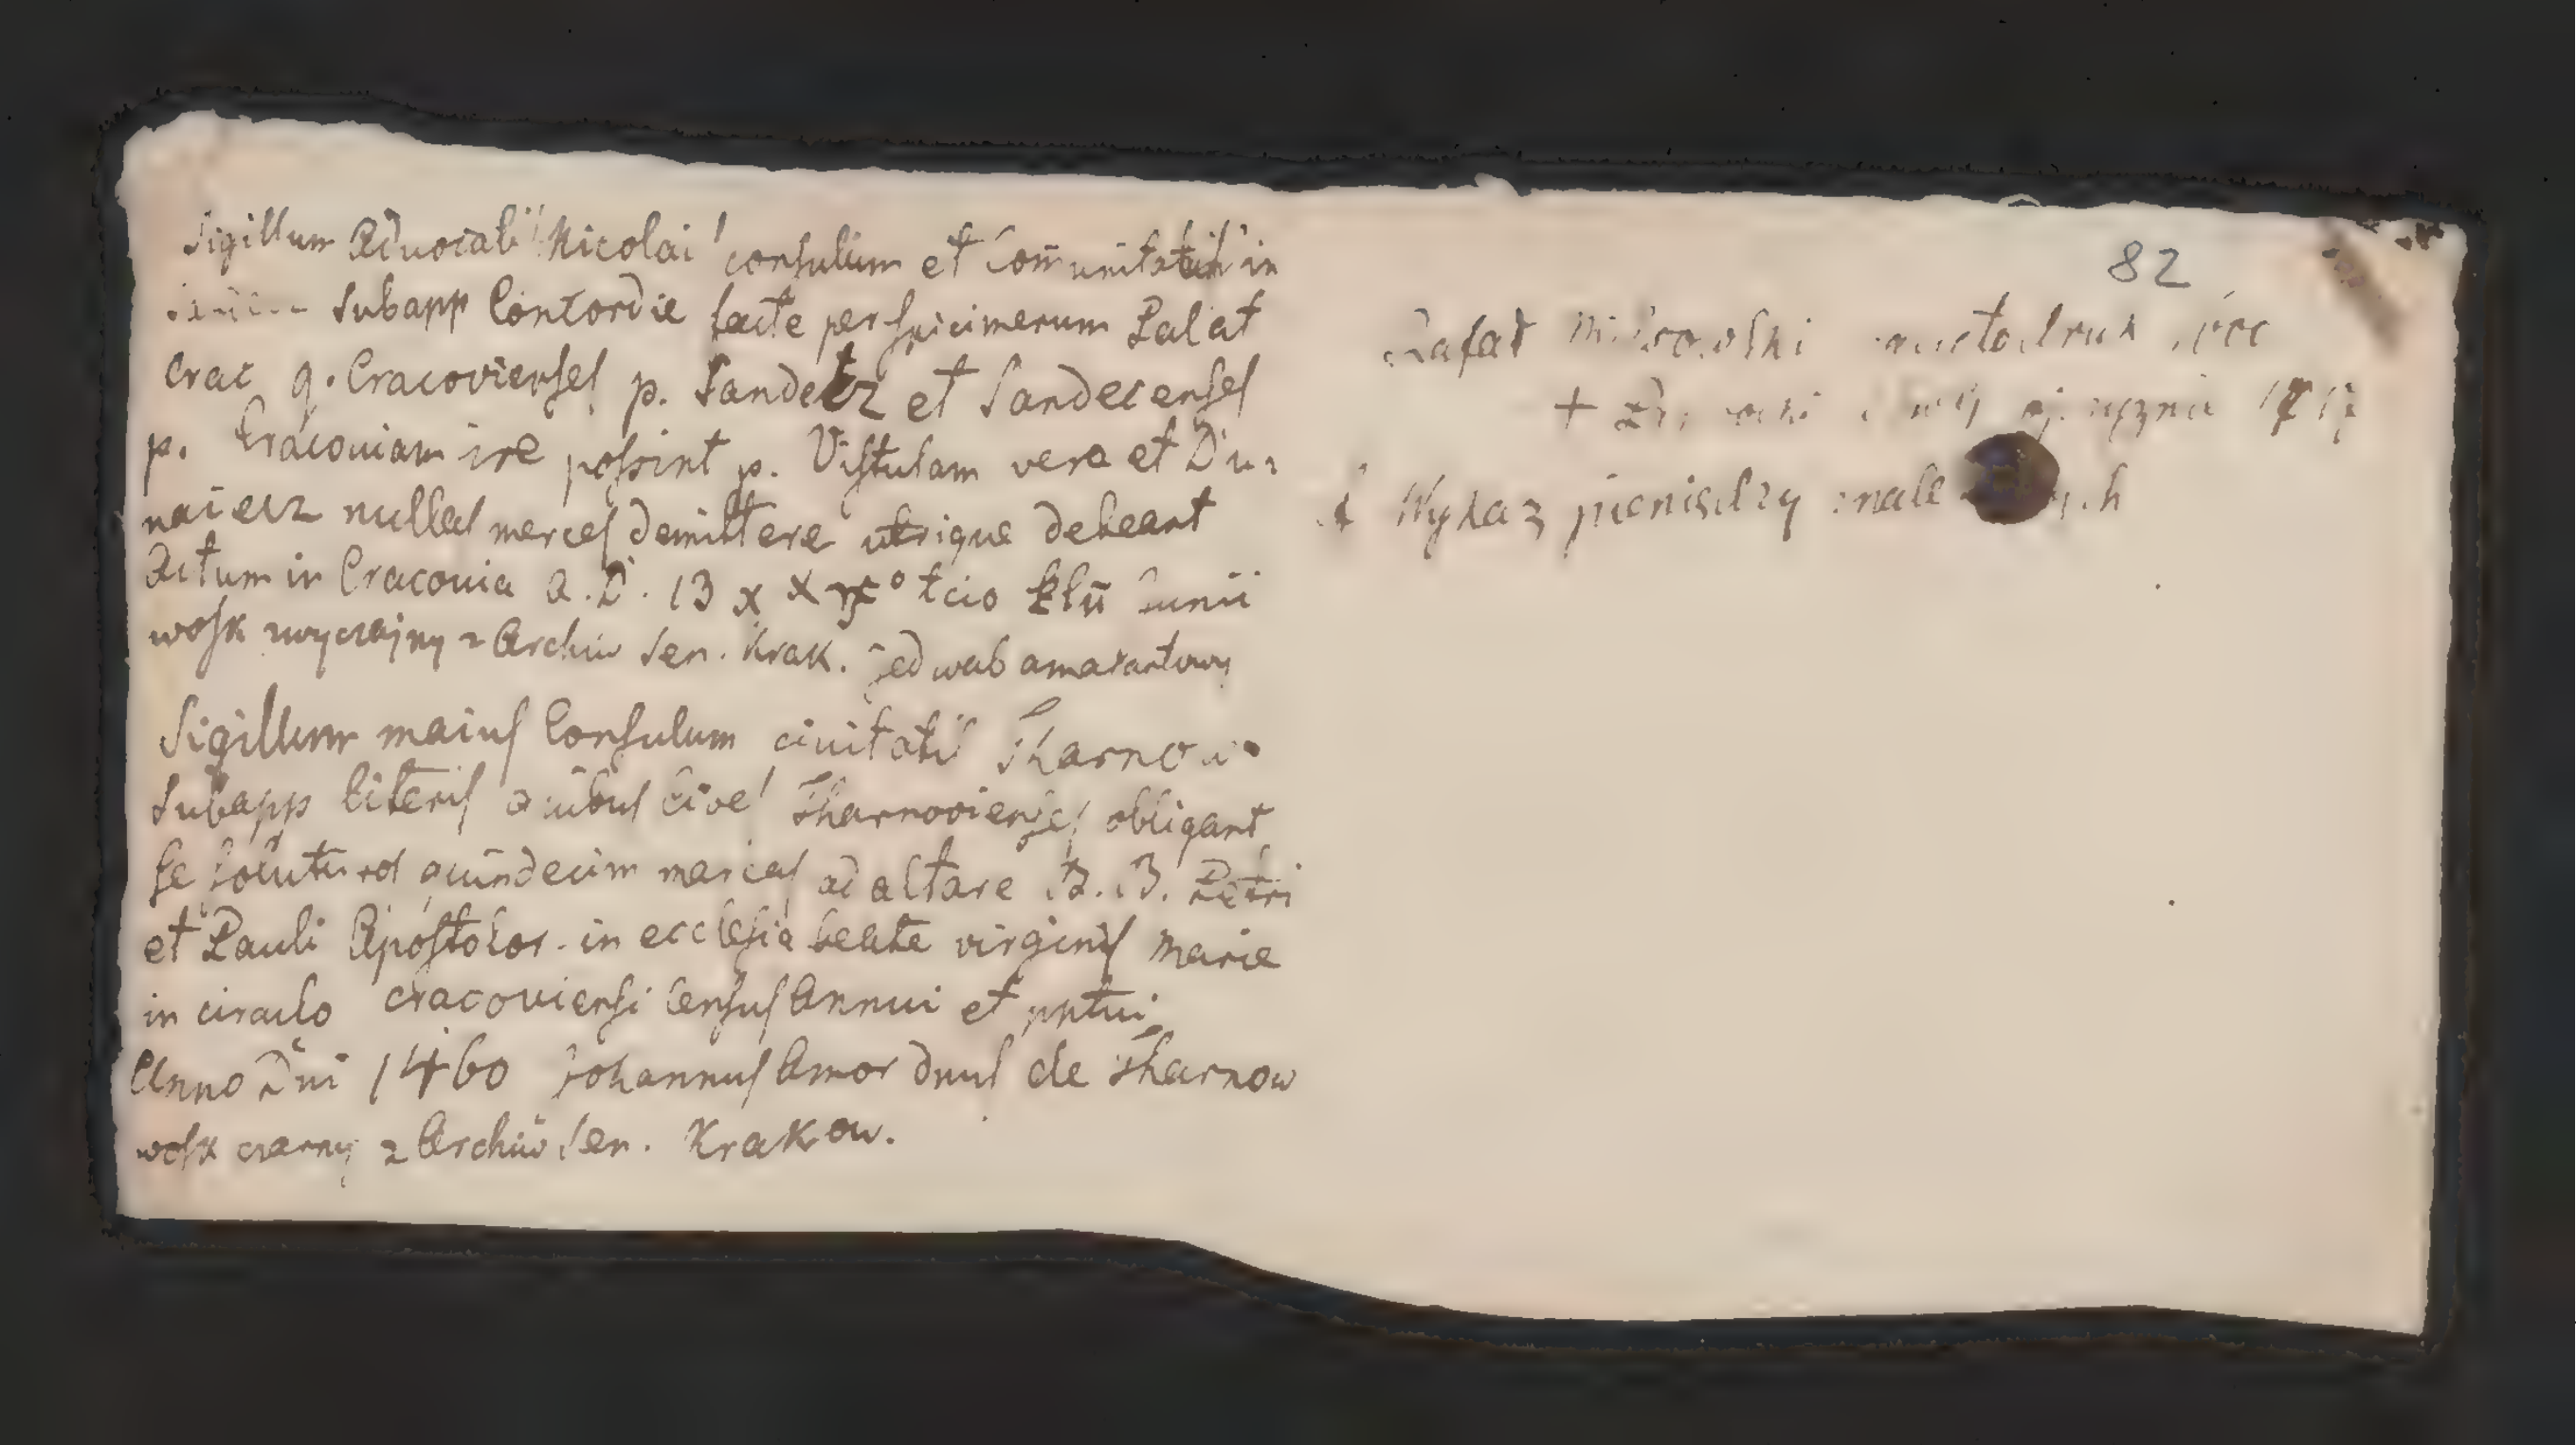 Sigillum Advocati Nicolai consulum et Comunitatis in
subapp Concordie facte per Spicimerum Palat
Crac q. Cracovienses p. Sandetz et Sandecenses
p. Cracoviam ire possint p. Vistulam vero et Du-
naiecz nullas merces demittere utrique debeant
Actum in Cracouia A.D. 13 x x x° tcio kln Junii
wosk zwyczajny z Archiw Sen. Krak. jedwab amarantowy
Sigillum maius Consulum ciuitatis Tharnow
subapp literis quibus cives Tharnovienses obligant
se soluturos quindecim marcas ad altare B.B. Petri
et Pauli Apostolor. in ecclesia beate virginis Marie
in circulo cracoviensi census Annui et pptui
Anno Dni 1460 Johannes Amor dnus de Tharnow
wosk czarny z Archiw Sen. Krakow.
82
Rafał
+
Wykaz pieniędzy